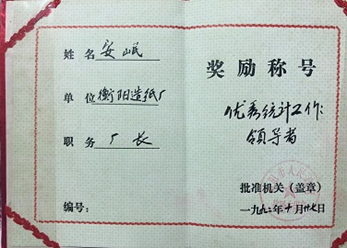 姓名 安岷
单位 衡阳造纸厂
职务 厂长
编号：
奖励称号
优秀统计工作
领导者
批准机关（盖章）
一九九二年十月廿七日